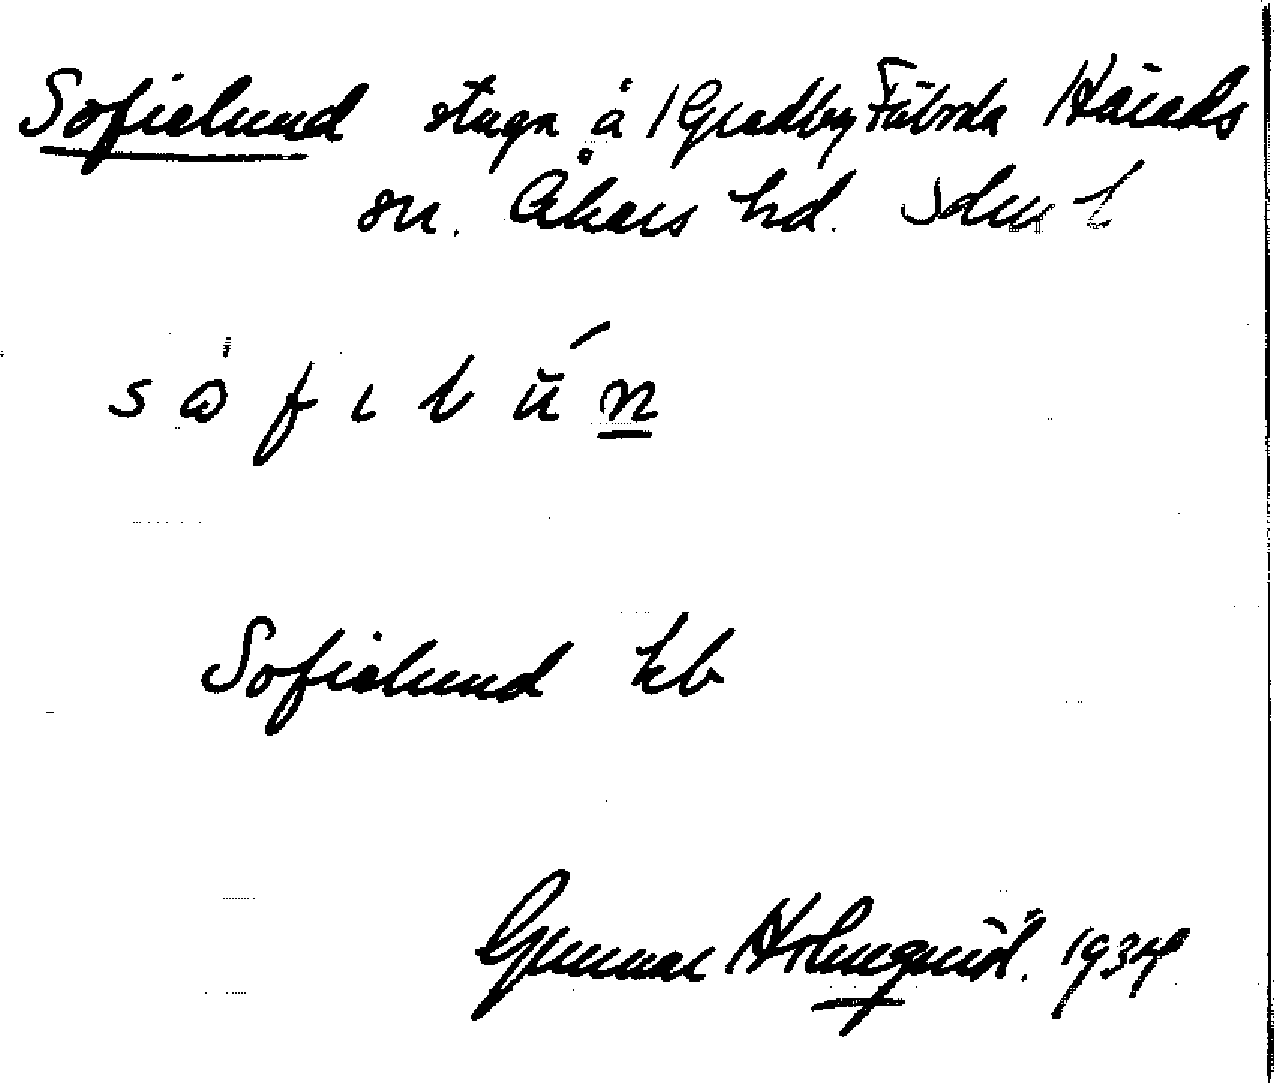 Sofielund stuga å Gredby Fäboda Härads
sn. Åkers hd. Sdml
s ω f ı l ŭ n
Sofielund kb
Gunnar Holmquist. 1934